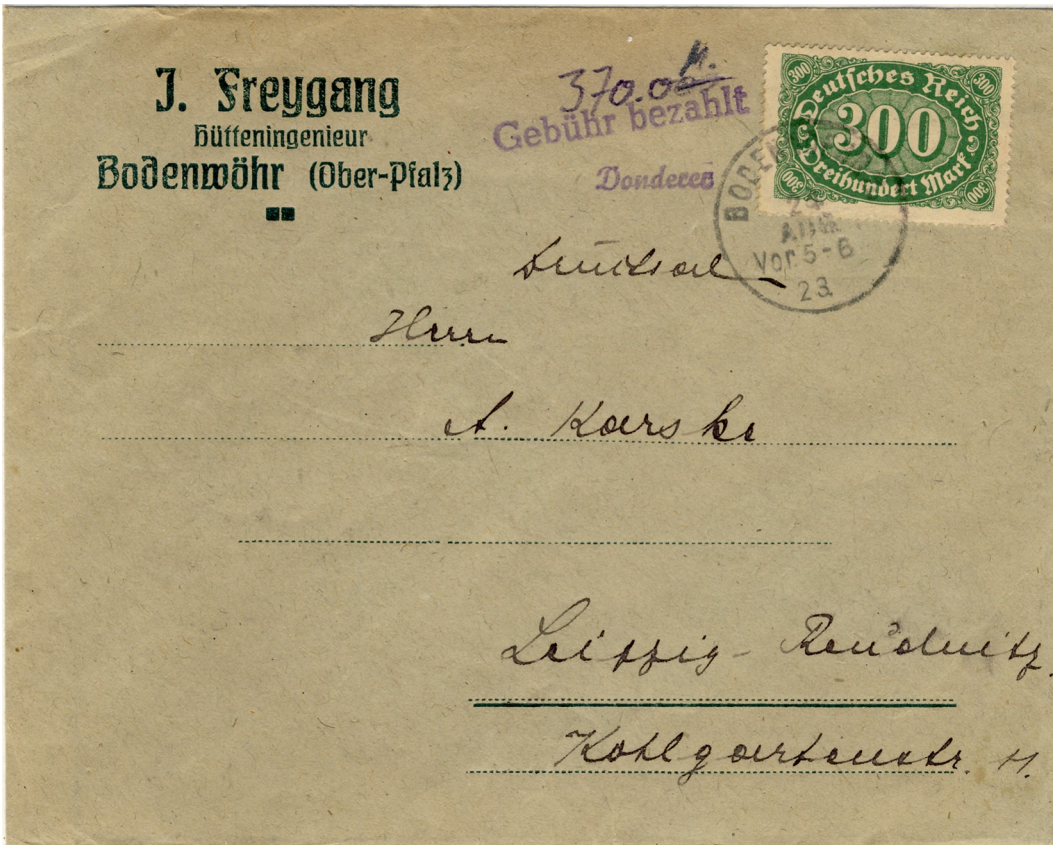 J. Freygang
Hütteningenieur
Bodenwöhr (Ober-Pfalz)
370.00 M.
Gebühr bezahlt
Donderer
300 300
Deutsches Reich
300
Dreihundert Mark
300 300
BODENWÖHR
AUG
Vor 5-6
23
Drucksache
Herrn
A. Karski
Leipzig-Reudnitz
Kohlgartenstr. 11.